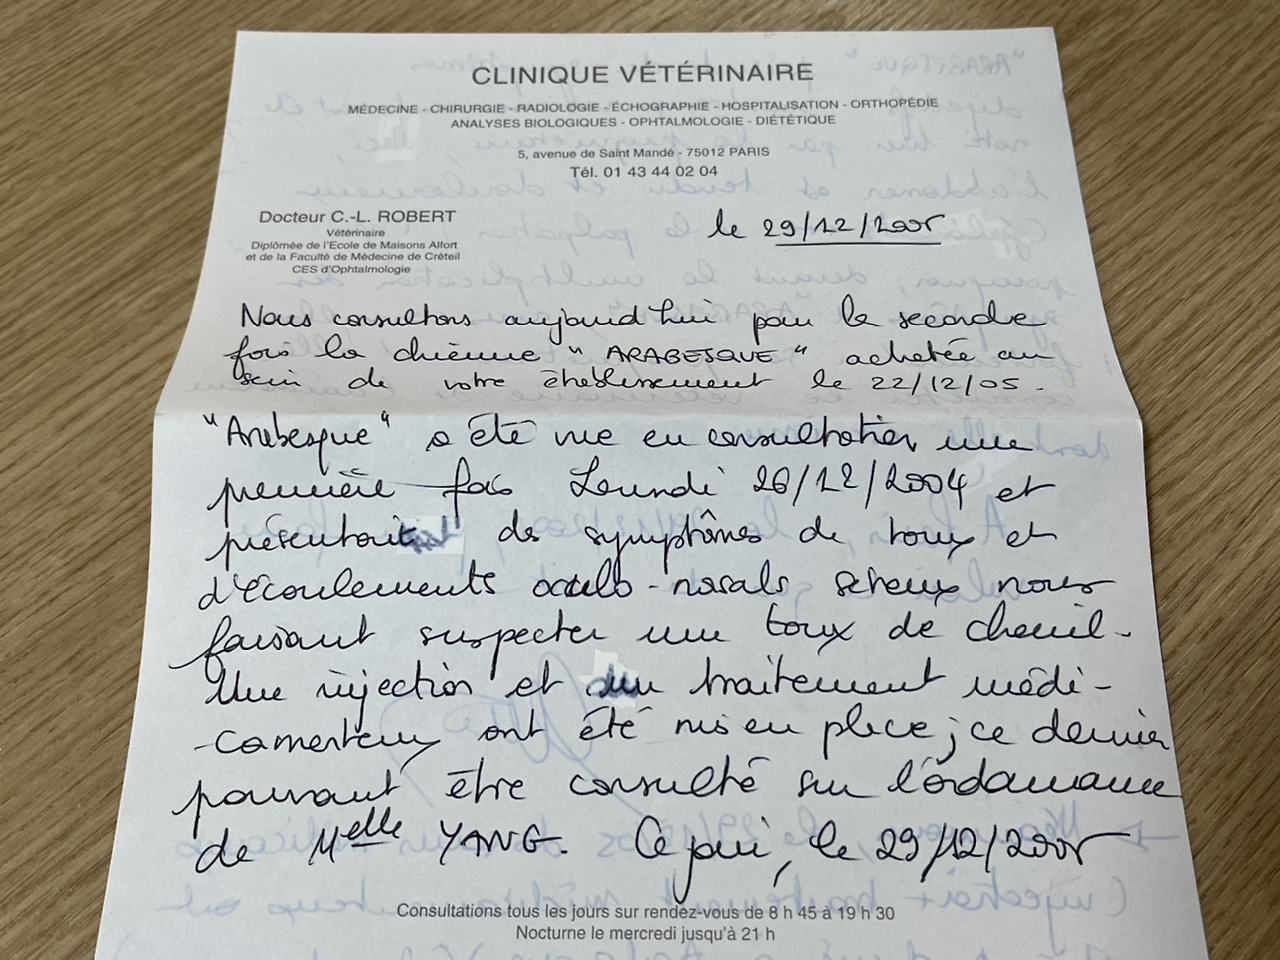 CLINIQUE VÉTÉRINAIRE
MÉDECINE - CHIRURGIE - RADIOLOGIE - ÉCHOGRAPHIE - HOSPITALISATION - ORTHOPÉDIE
ANALYSES BIOLOGIQUES - OPHTALMOLOGIE - DIÉTÉTIQUE
5, avenue de Saint Mandé - 75012 PARIS
Tél. 01 43 44 02 04
Docteur C.-L. ROBERT
Vétérinaire
Diplômée de l'Ecole de Maisons Alfort
et de la Faculté de Médecine de Créteil
CES d'Ophtalmologie
le 29/12/2005
Nous consultons aujourd'hui pour la seconde
fois la chienne "ARABESQUE" achetée au
sein de votre établissement le 22/12/05.
"Arabesque" a été vue en consultation une
première fois Lundi 26/12/2004 et
présentait des symptômes de toux et
d'écoulements oculo-nasals séreux nous
faisant suspecter une toux de chenil.
Une injection et un traitement médi-
-camenteux ont été mis en place ; ce dernier
pouvant être consulté sur l'ordonnance
de Melle YANG. Ce jour, le 29/12/2005
Consultations tous les jours sur rendez-vous de 8 h 45 à 19 h 30
Nocturne le mercredi jusqu'à 21 h